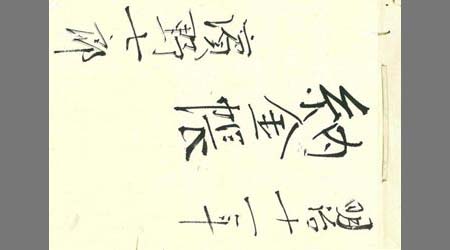 明治十一年
納金帳
野七郎